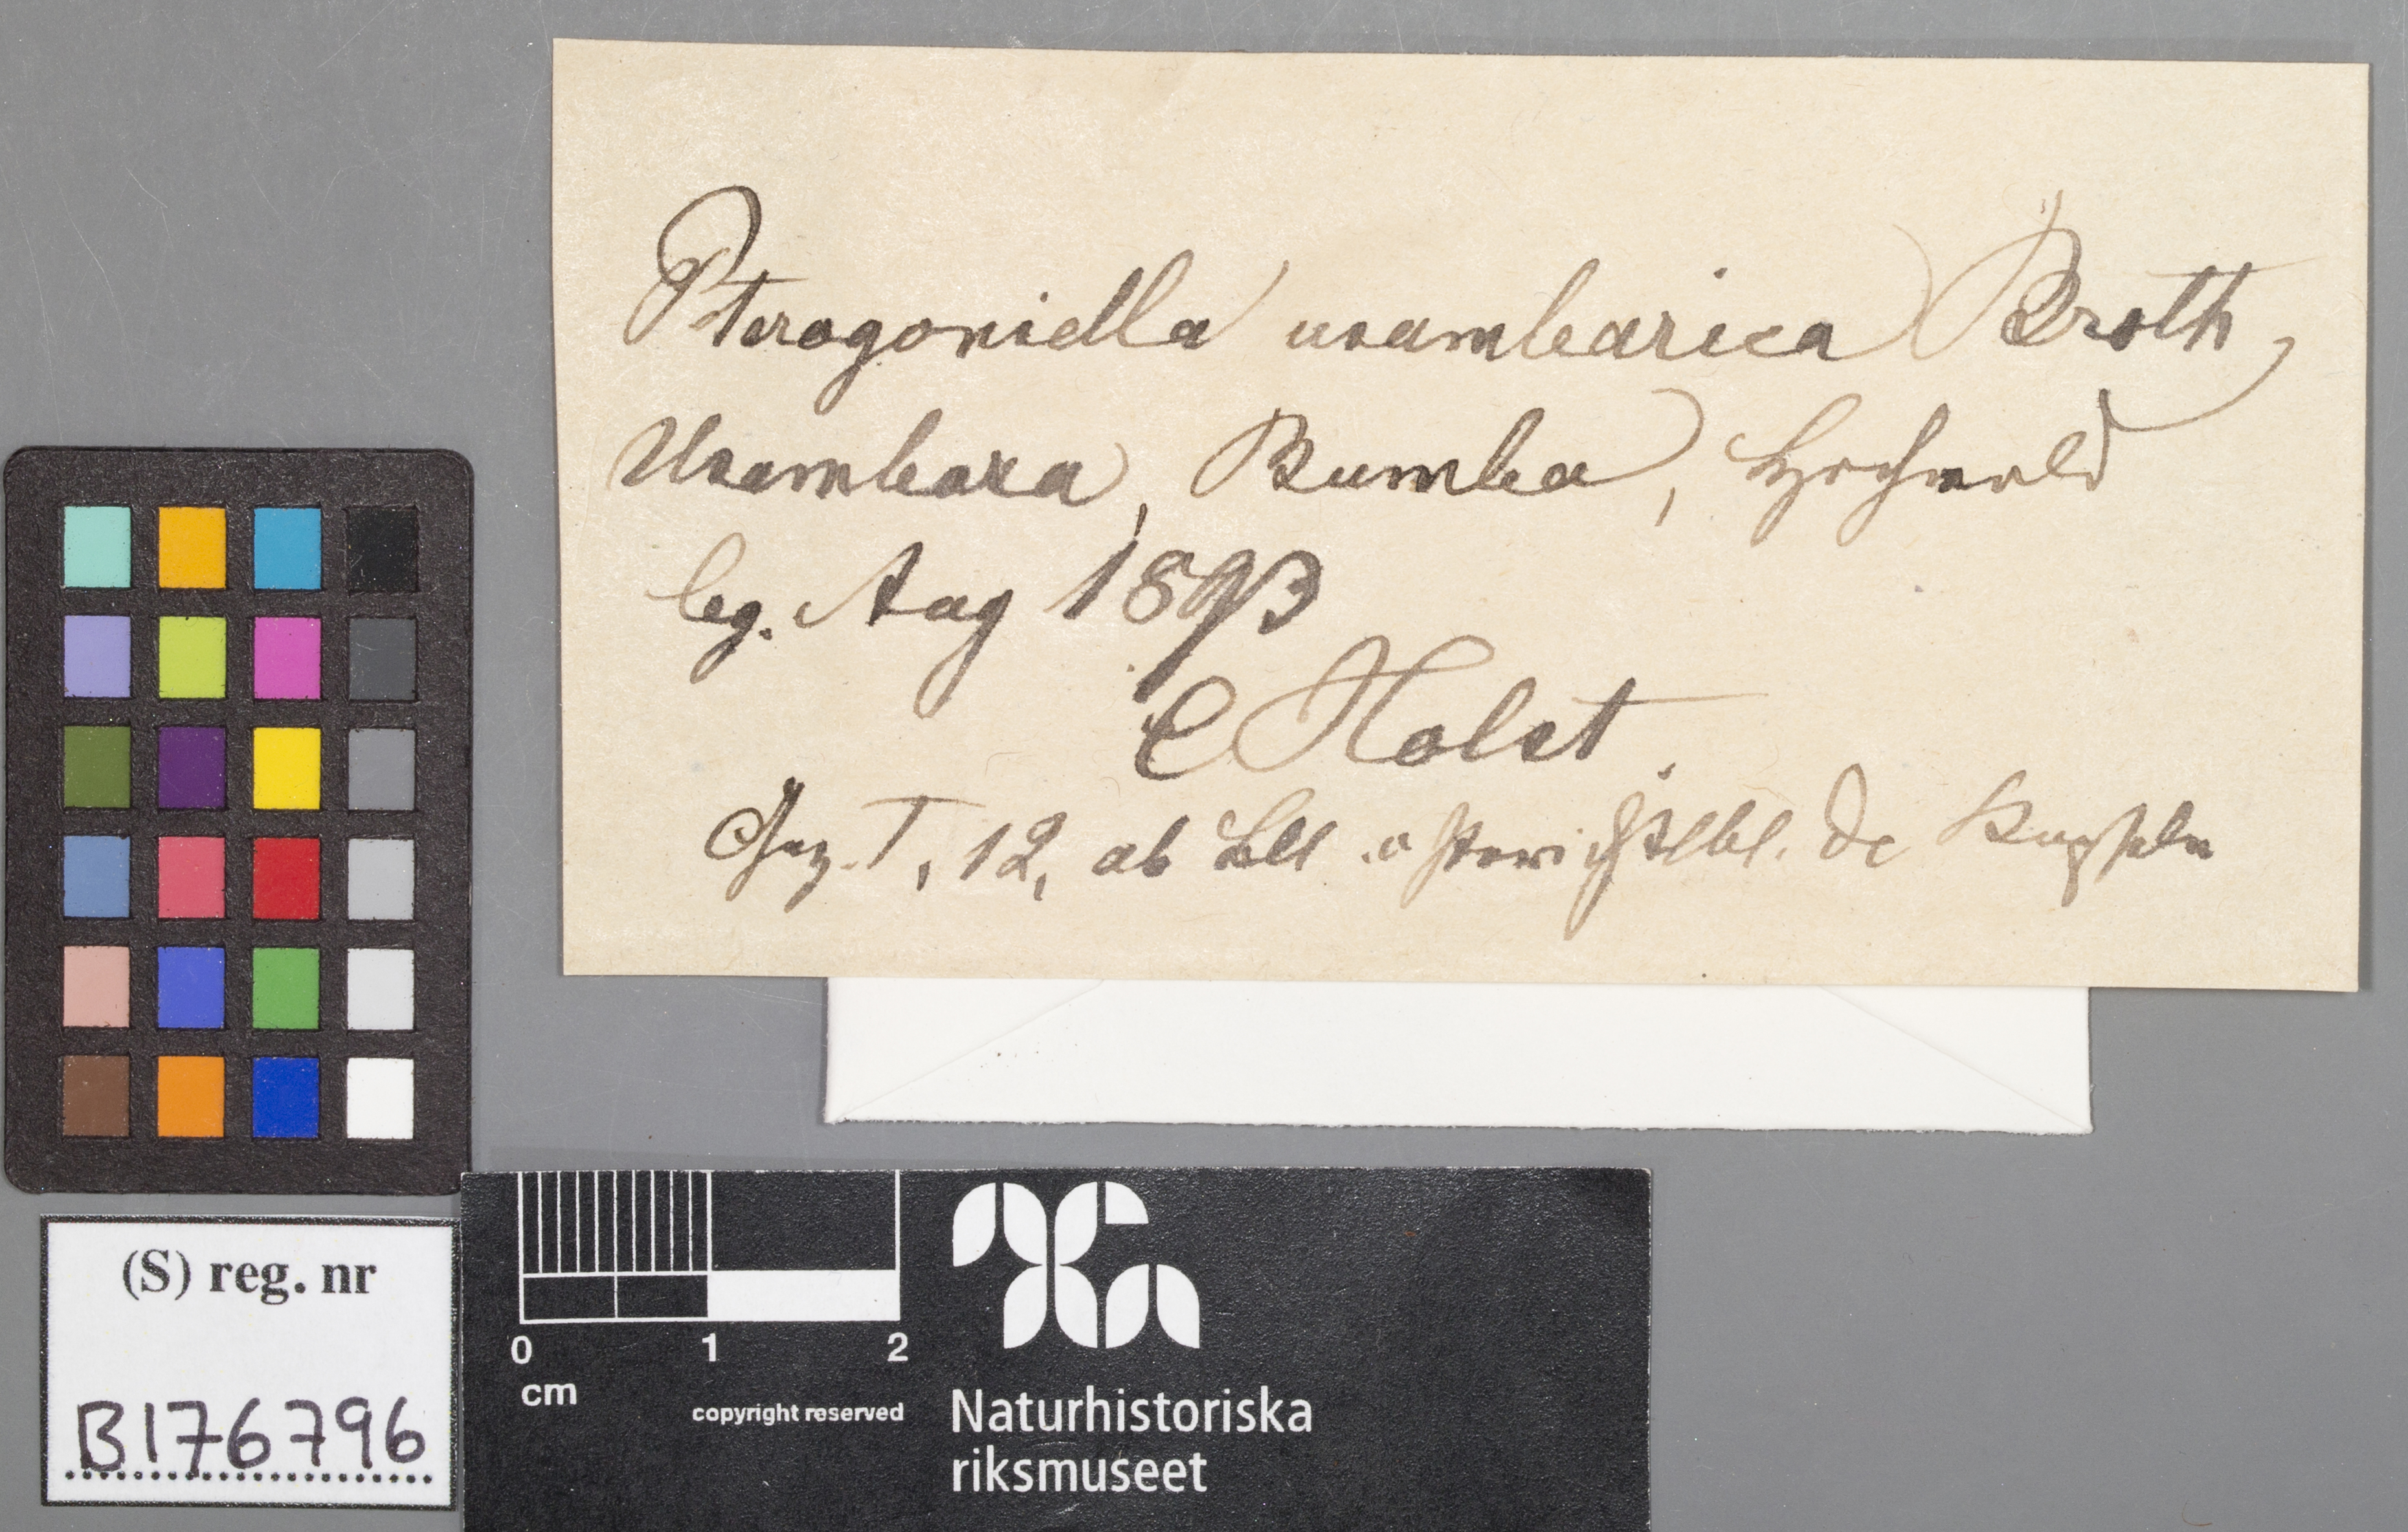 Pterogoniella usambarica Broth,
Usambara, Bumba, Hochwald
leg. Aug 1893
C Holst.
T, 12, ab
(S) reg. nr
B176796
0 1 2
cm
copyright reserved
Naturhistoriska
riksmuseet